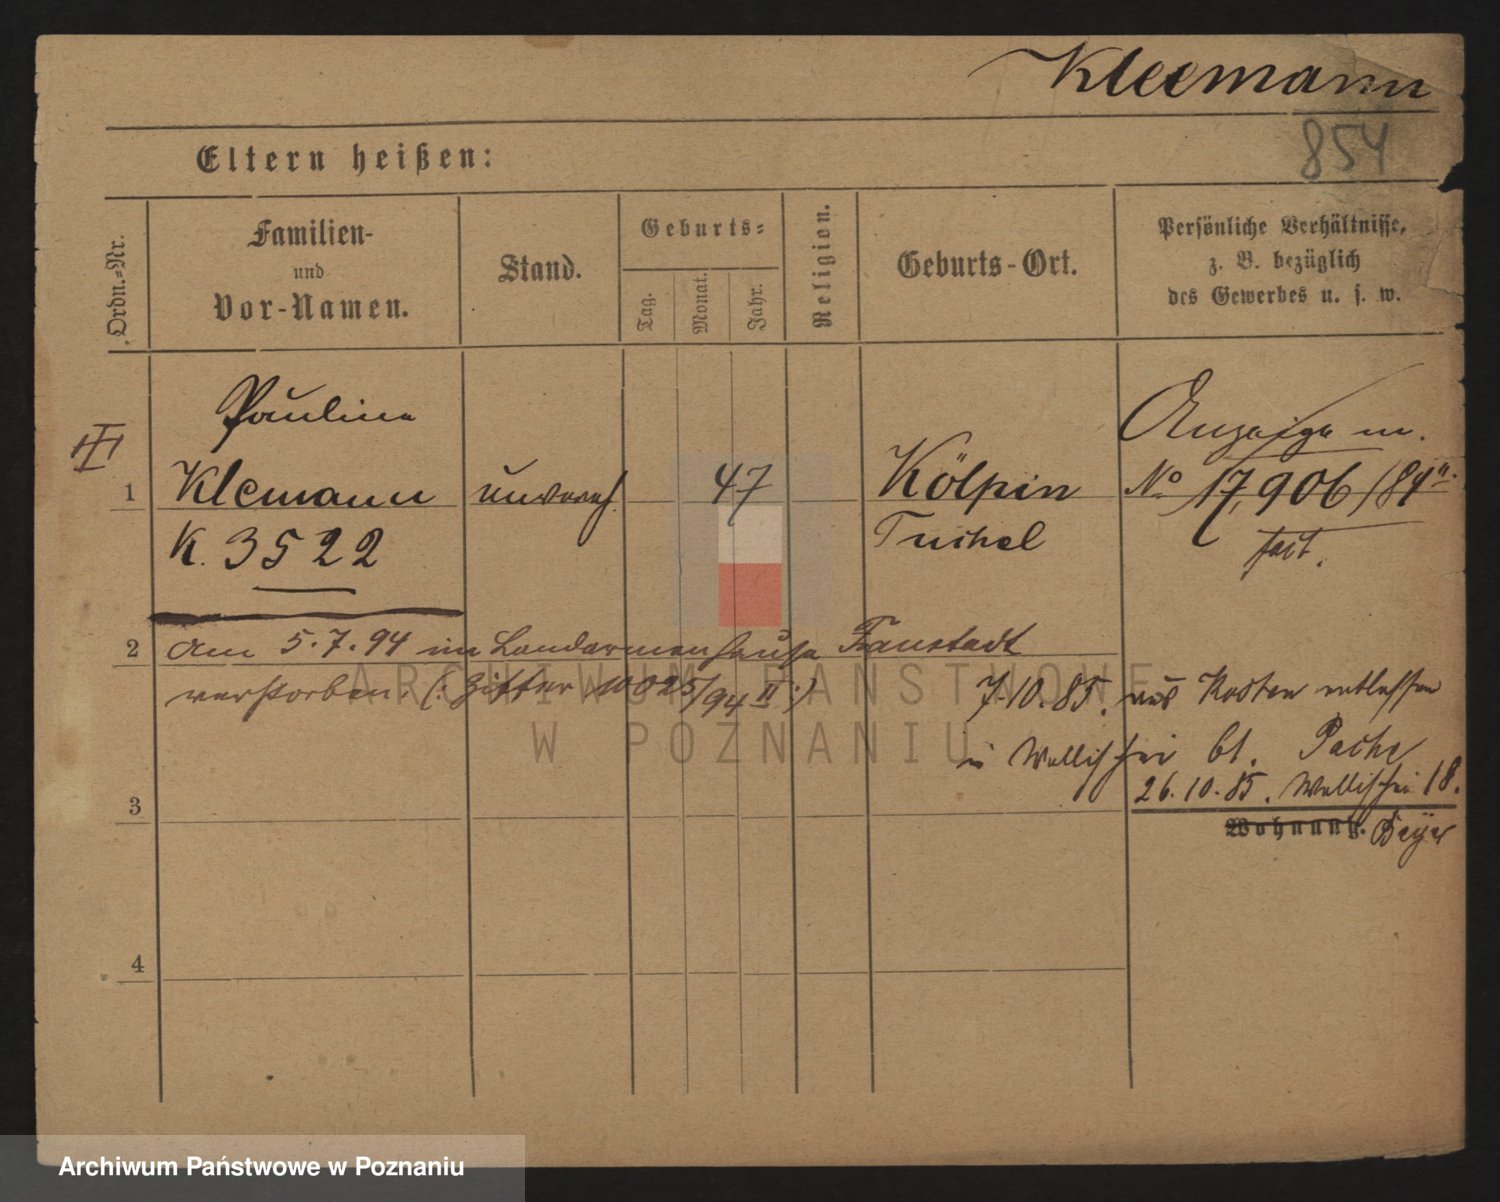 Kleemann
854
Eltern heißen:
Ordn.-Nr.
Familien-
und
Vor-Namen.
Stand.
Geburts-
Tag.
Monat.
Jahr.
Religion.
Geburts-Ort.
Persönliche Verhältnisse,
z. B. bezüglich
des Gewerbes u. s. w.
Pauline
1 Klemann unvereh. 47 Kölpin
K. 3522 Tuchel
Anzeige m.
No 17,906/84 II.
fort.
2 am 5.7.94 im Landarmenhause Fraustadt
verstorben. (: Ziffer 10025/94 II :)
7.10.85. aus Kosten entlassen
in Wallischei bt. Pache
26.10.85. Wallischei 18.
Wohnung. Beyer
3
4
ARCHIWUM PAŃSTWOWE
W POZNANIU
Archiwum Państwowe w Poznaniu